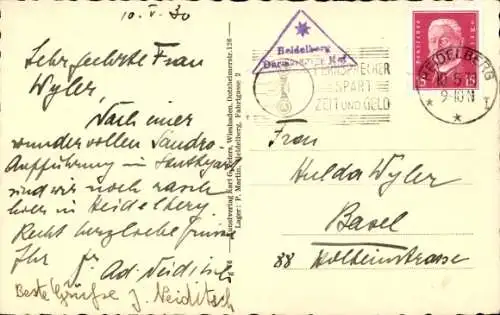 10. V. 30
Sehr geehrte Frau
Wyler,
Nach einer
wundervollen Sandro-
Aufführung in Stuttgart
sind wir noch rasch
in Heidelberg
Recht herzliche Grüsse
Ihr
Ad. Neiditsch
Beste Grüsse J. Neiditsch
Kunstverlag Karl Wiesbaden, Dotzheimerstr. 126
Lager: P. Martin, Heidelberg, Fahrtgasse 2
Heidelberg
FERNSPRECHER
SPART
ZEIT UND GELD
DEUTSCHES REICH
15 15
HEIDELBERG
10.5.
9-10 V
* I *
Frau
Hulda Wyler
Basel
88 Holbeinstrasse